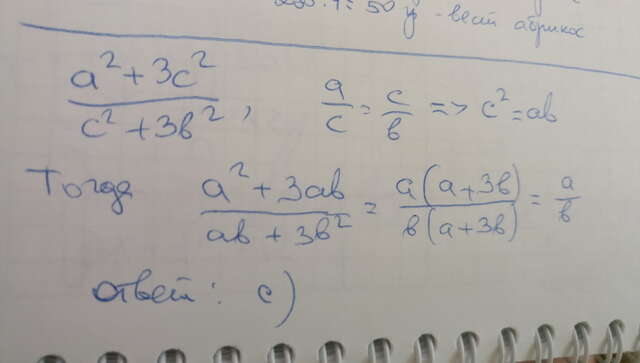 : 7 = 50 г - весит абрикос
a² + 3c² / c² + 3b² , a/c = c/b => c² = ab
Тогда a² + 3ab / ab + 3b² = a(a+3b) / b(a+3b) = a/b
ответ: c)